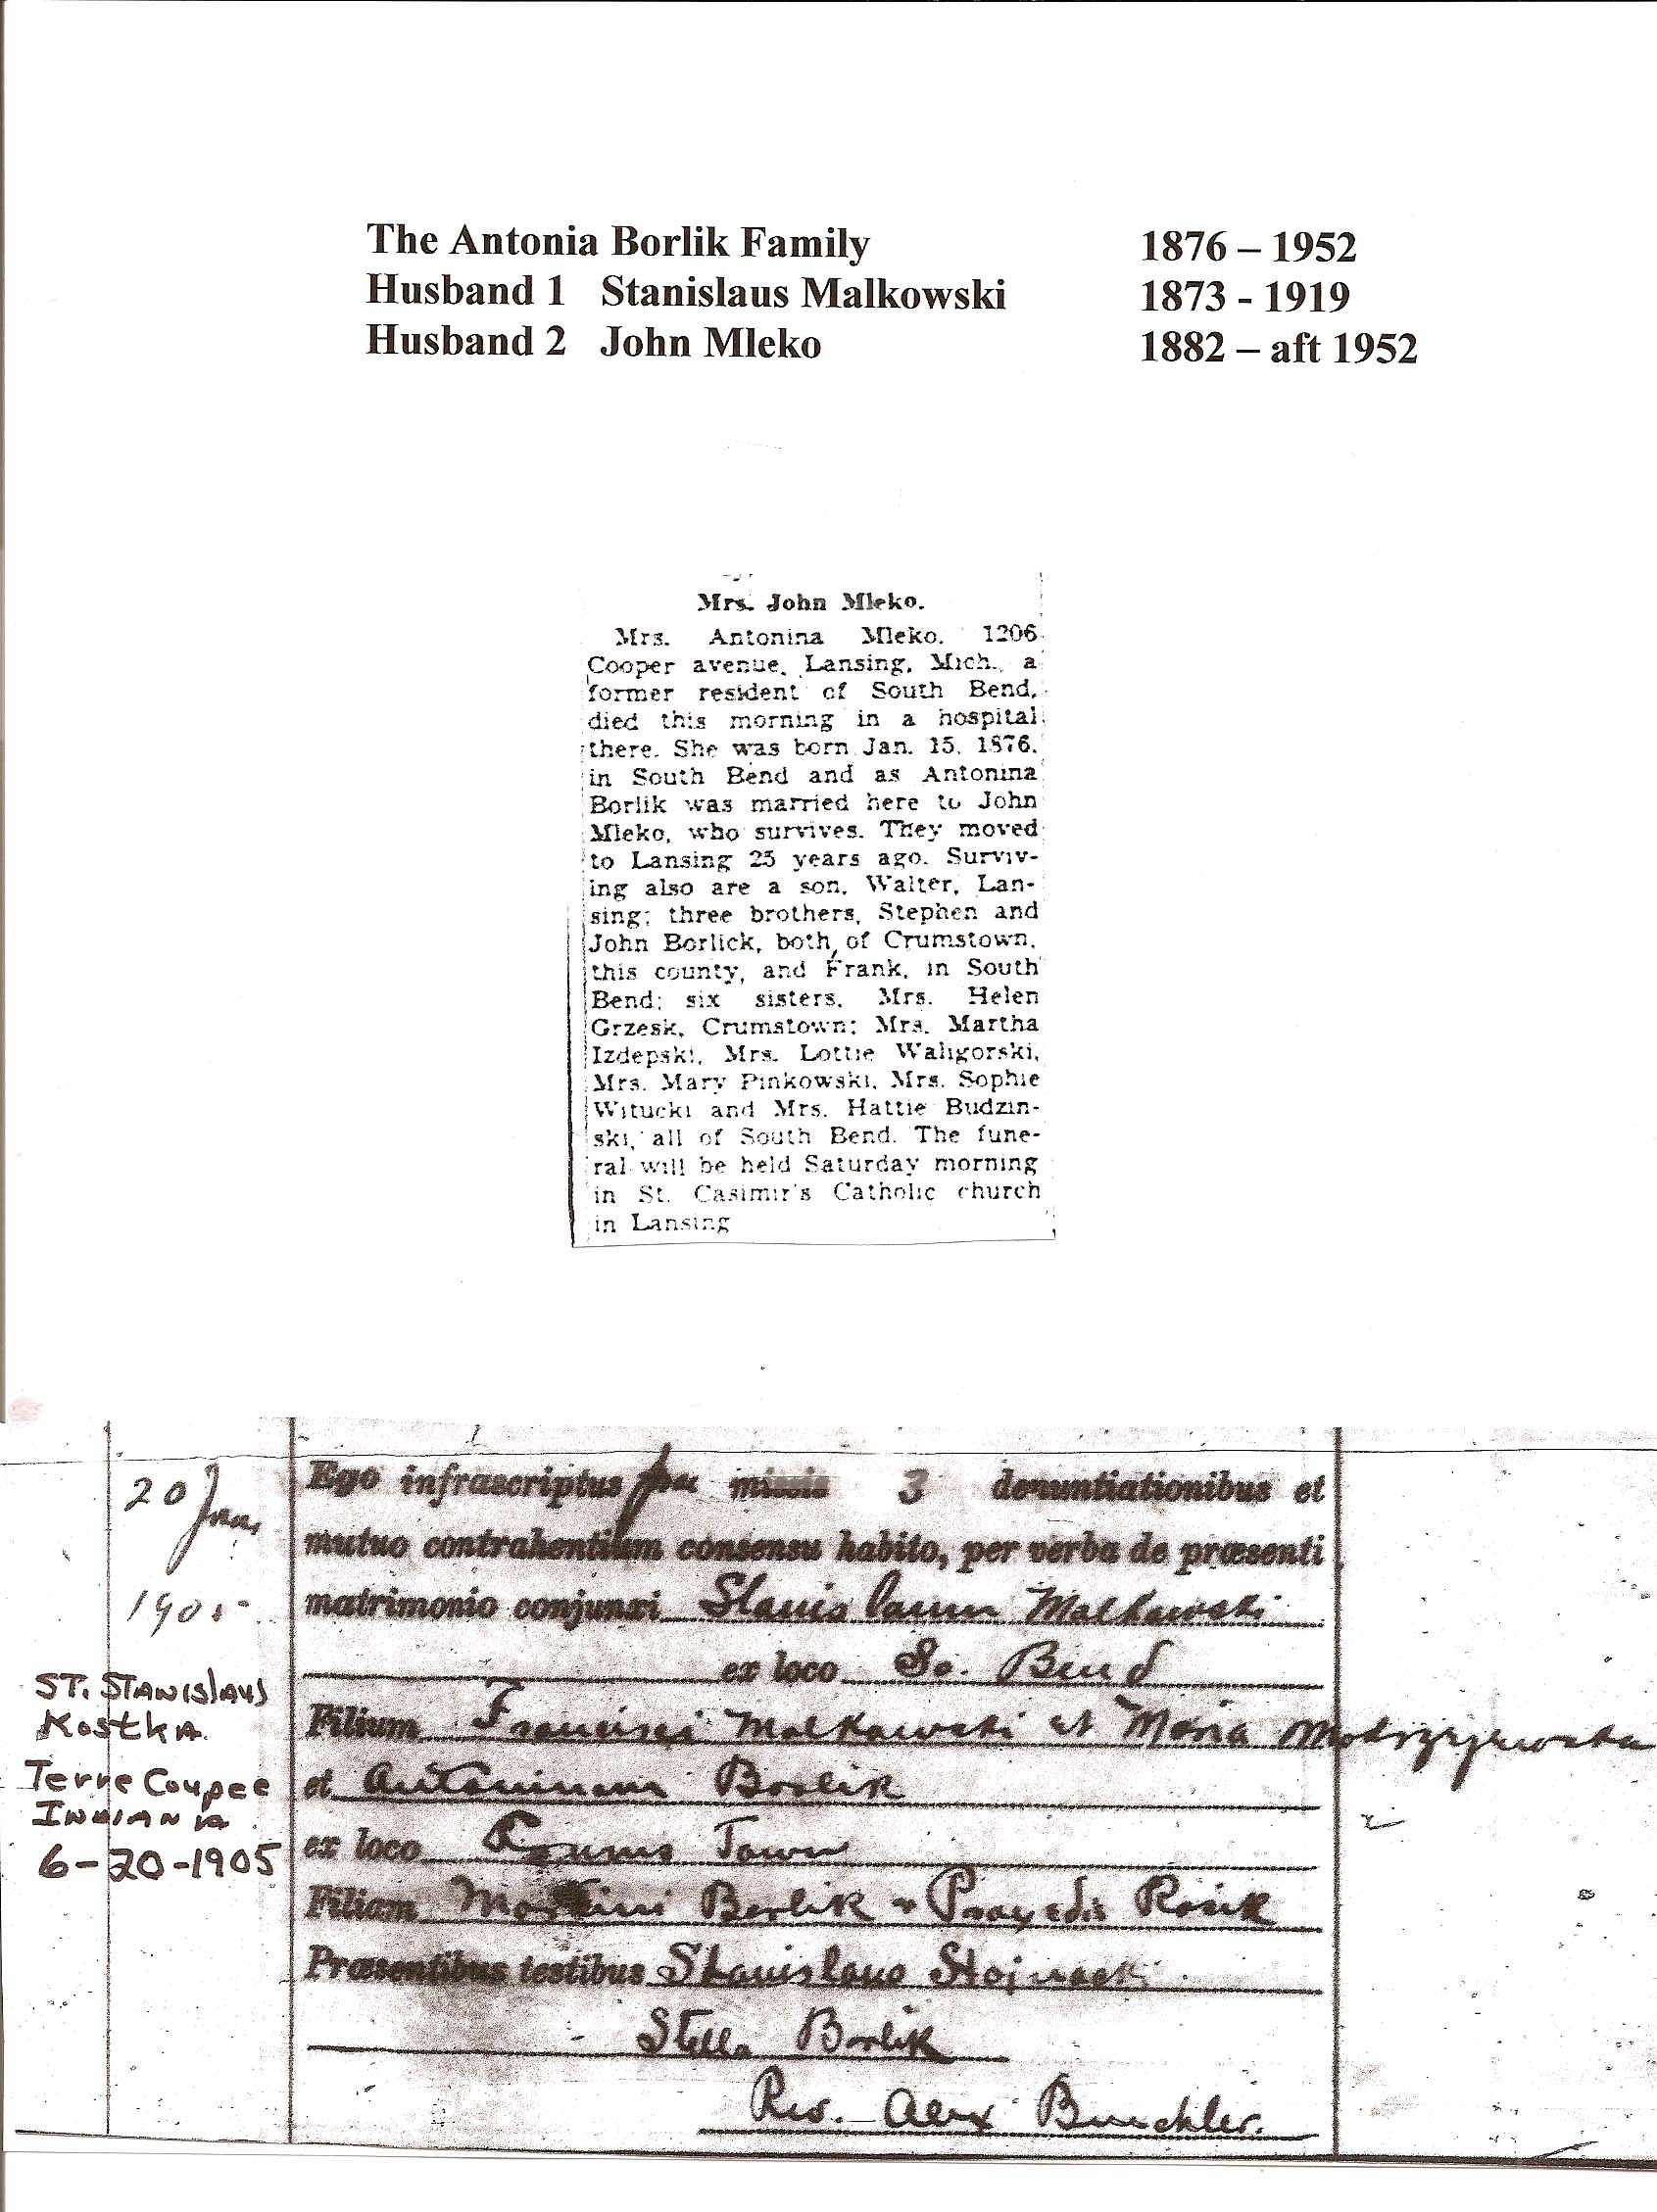 The Antonia Borlik Family 1876 – 1952
Husband 1 Stanislaus Malkowski 1873 - 1919
Husband 2 John Mleko 1882 – aft 1952
Mrs. John Mleko.
Mrs. Antonina Mleko. 1206
Cooper avenue, Lansing, Mich., a
former resident of South Bend,
died this morning in a hospital
there. She was born Jan. 15, 1876,
in South Bend and as Antonina
Borlik was married here to John
Mleko, who survives. They moved
to Lansing 25 years ago. Surviv-
ing also are a son, Walter, Lan-
sing; three brothers, Stephen and
John Borlick, both of Crumstown,
this county, and Frank, in South
Bend; six sisters, Mrs. Helen
Grzesk, Crumstown; Mrs. Martha
Izdepski, Mrs. Lottie Waligorski,
Mrs. Mary Pinkowski, Mrs. Sophie
Witucki and Mrs. Hattie Budzin-
ski, all of South Bend. The fune-
ral will be held Saturday morning
in St. Casimir's Catholic church
in Lansing
20
1905
ST. STANISlAUS
KostkA
Terre Coupee
INDIANA
6-20-1905
Ego infrascriptus 3 denuntiationibus et
mutuo contrahentium consensu habito, per verba de præsenti
matrimonio conjunxi Stanislaum Malkowski
ex loco So. Bend
Filium Francisci Malkowski et Maria
et Antoninam Borlik
ex loco Town
Filiam Borlik Praxedis Rosik
Præsentibus testibus Stanislao Stojnacki
Stella Borlik
Rev. Alex Buechler.